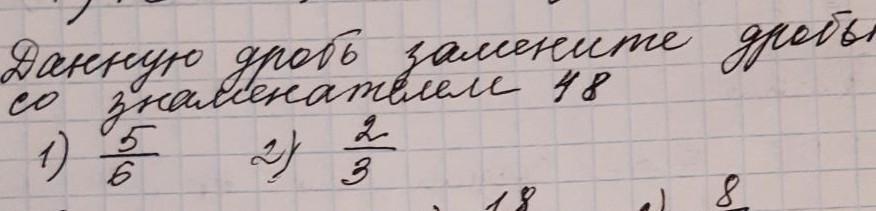 Данную дробь замените дробь
со знаменателем 48
1) 5/6 2) 2/3
18 8